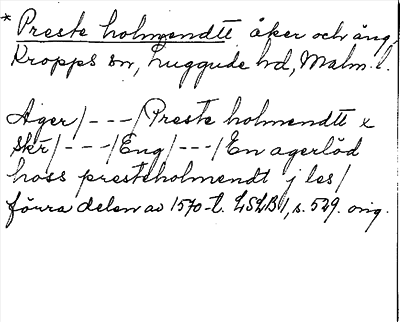 * Preste holmendtt åker och äng,
Kropps sn, Luggude hd, Malm. l.
Ager/---/Preste holmendtt x
skr/---/Eng/---/En agerlöd
hoss presteholmendt j les/
förra delen av 1570-t. LSLB 1, s. 529. orig.